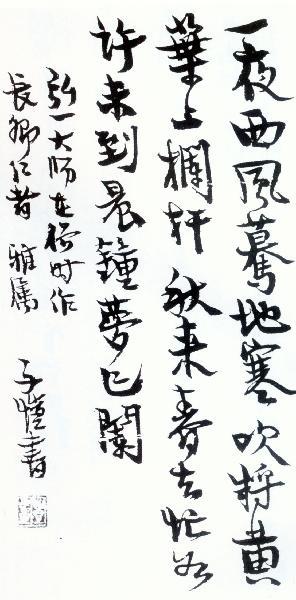 一夜西風驀地寒吹将黄
葉上欄杆秋来春去忙如
許未到晨鐘夢已闌
弘一大师在俗时作
長卿仁者 雅属
子愷書